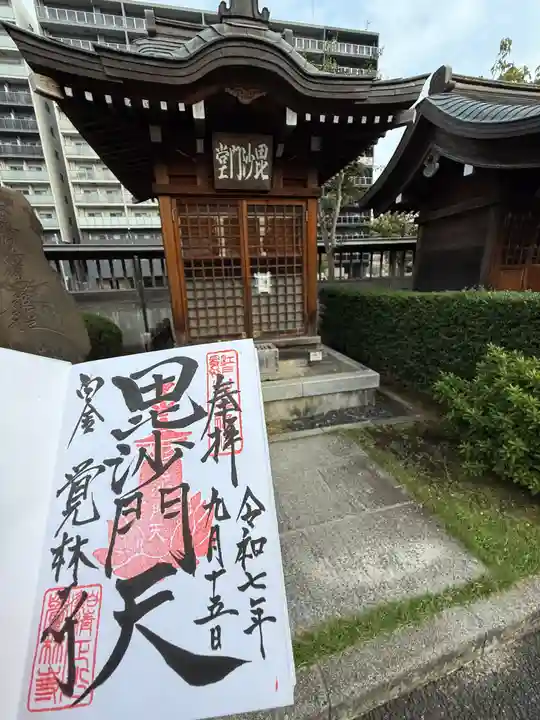 毘沙門堂
奉拝
令和七年
九月十五日
毘沙門天
白金
覚林寺